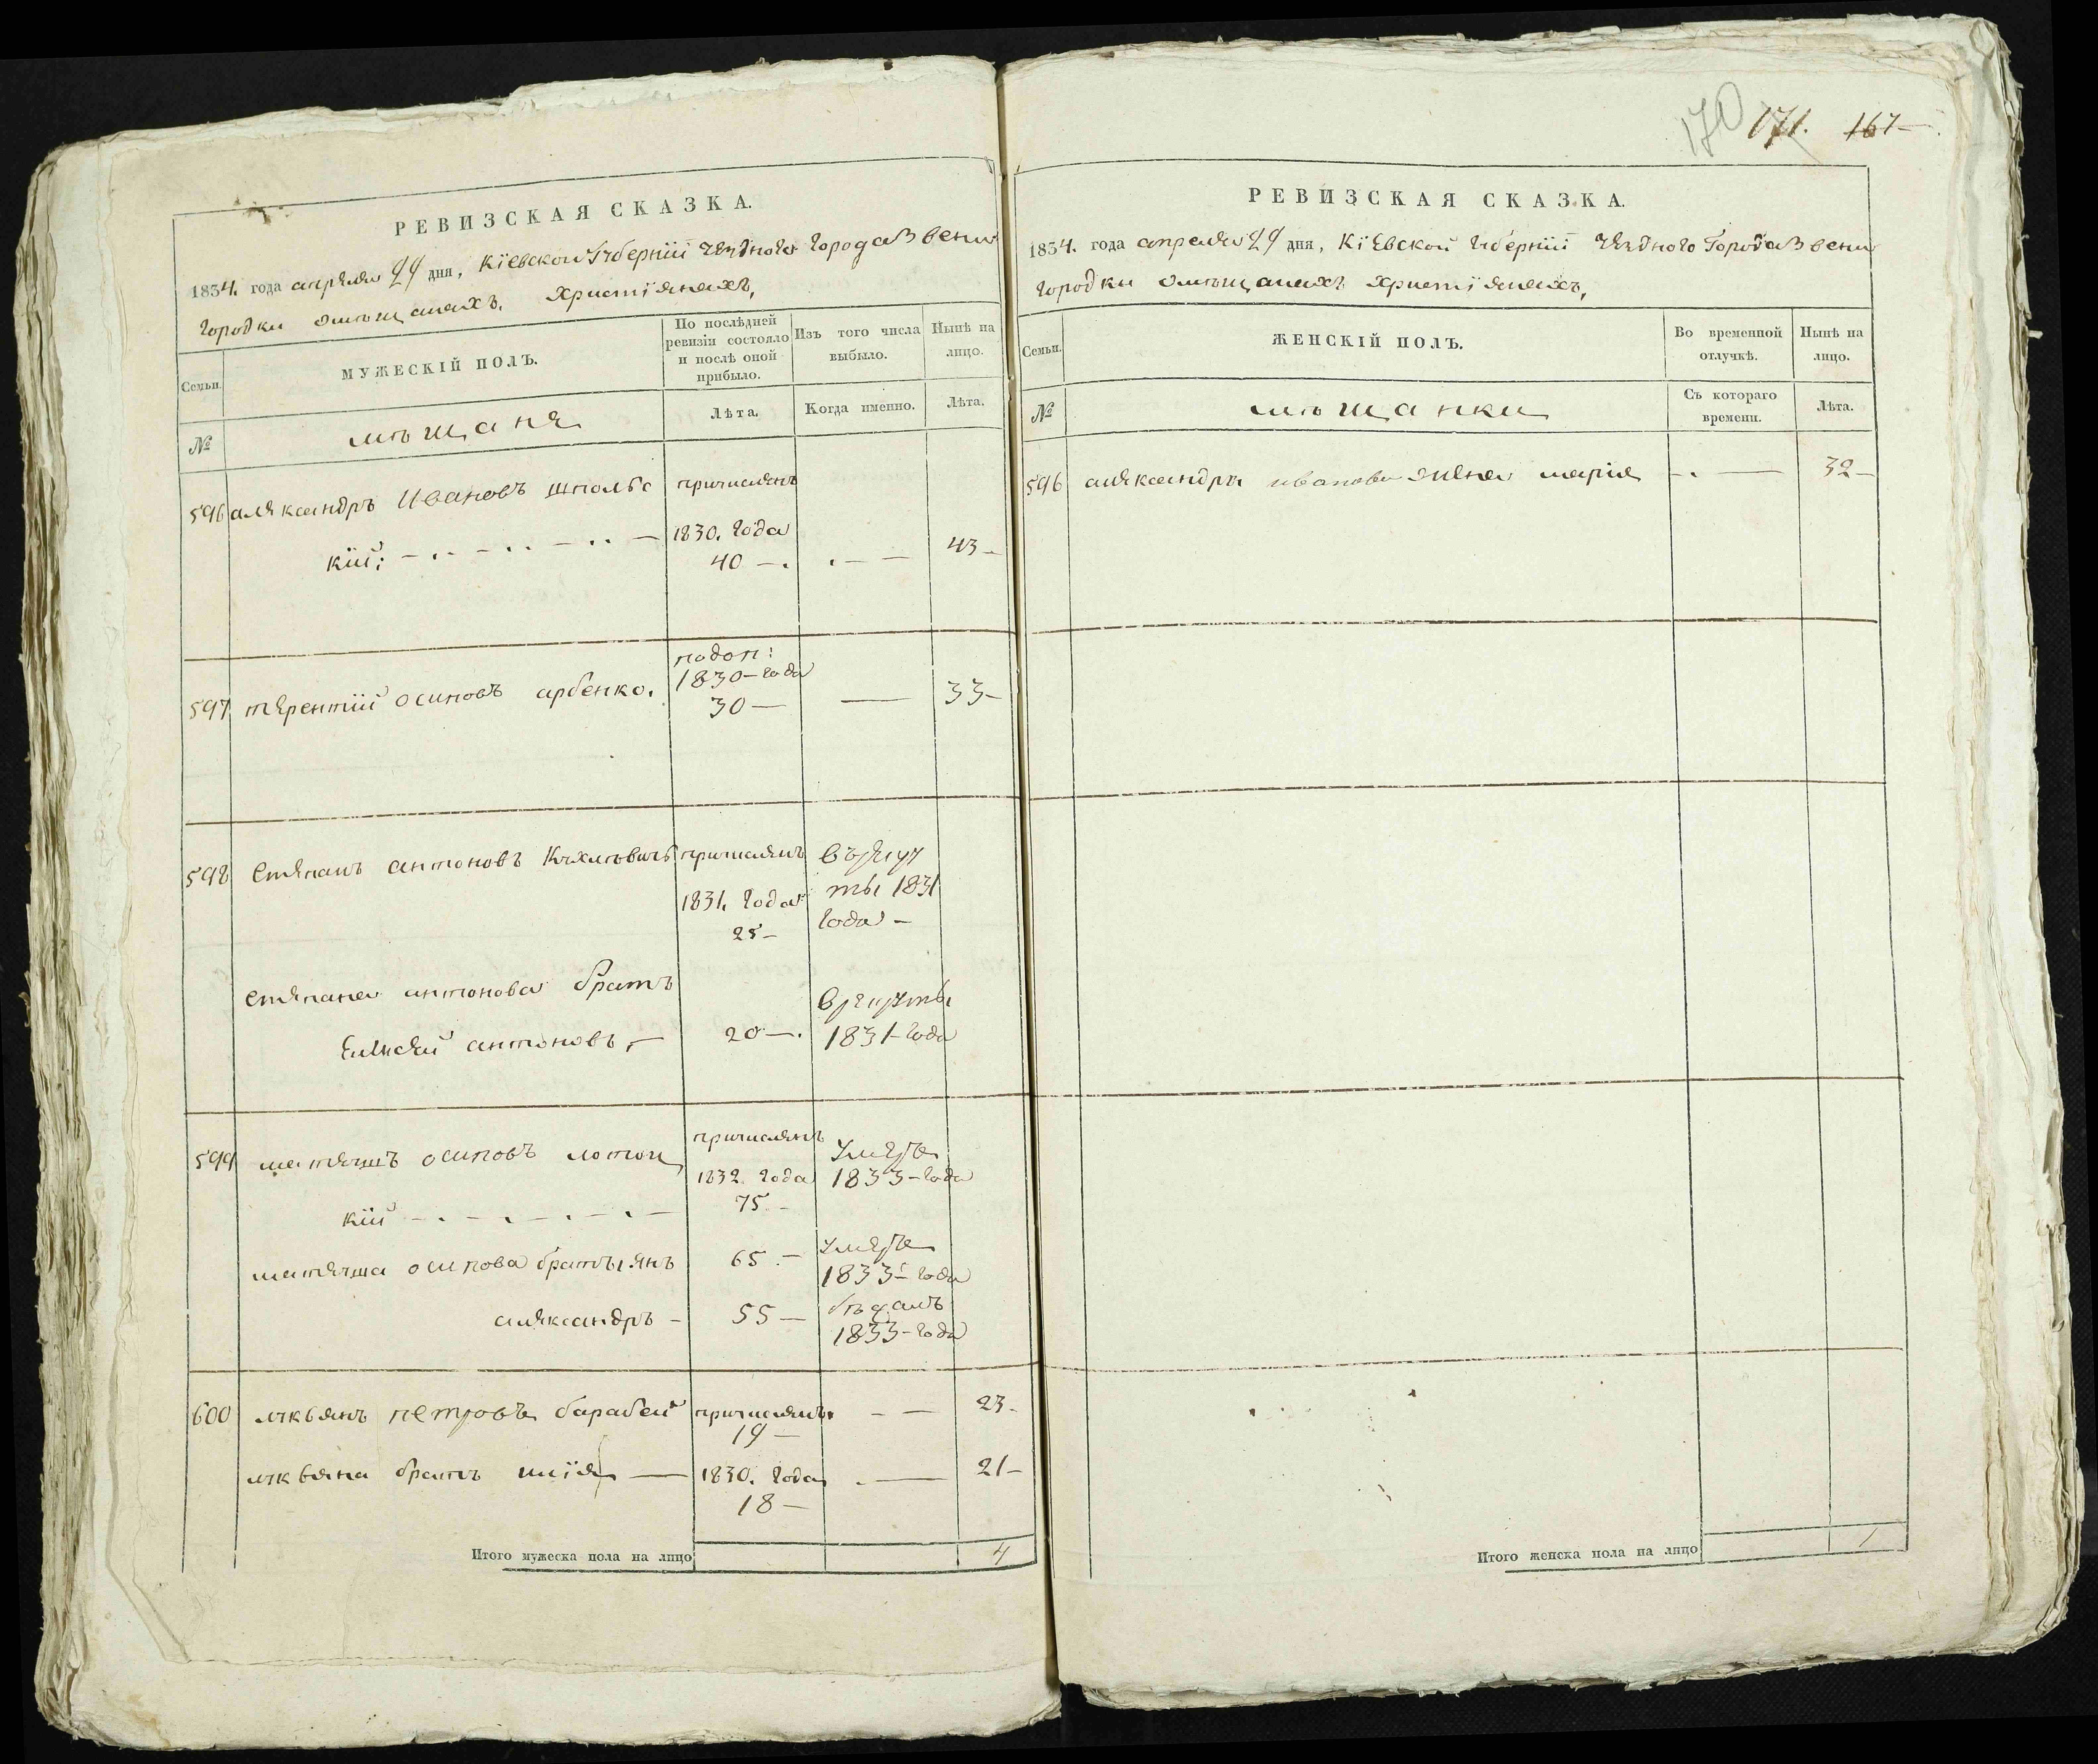 РЕВИЗСКАЯ СКАЗКА.
1834. года апреля 24 дня, Кіевской Губерніи уѣзднаго города Звени
городки омѣщанахъ, христіянахъ,
Семьи.
МУЖЕСКІЙ ПОЛЪ.
По послѣдней ревизіи состояло и послѣ оной прибыло.
Изъ того числа выбыло.
Нынѣ на лицо.
№
мѣщаня
Лѣта.
Когда именно.
Лѣта.
596 аляксандръ Ивановъ шполѣс причислянъ
кій: 1830. года
40 — 43 —
подоп:
1830 — года
597 терентій осиповъ 30 — — 33 —
598 степанъ антоновъ причислянъ
1831. года 1831
25 — года —
степана антонова братъ
антоновъ, — 20 — 1831 — года
599 осиповъ причислянъ умеръ
1832. года 1833 — года
кій 75 —
осипова братья янъ 65 — умеръ
1833 — года
аляксандръ — 55 — бѣжалъ
1833 — года
600 лукьянъ петровъ барабей причислянъ — — 23 —
19 —
лукьяна братъ илія — 1830. года — 21 —
18 —
Итого мужеска пола на лицо 4
170 171. 167 —
РЕВИЗСКАЯ СКАЗКА.
1834. года апреля 24 дня, Кіевской губерніи уѣзднаго Города Звени
городки омѣщанахъ христіянахъ,
Семьи.
ЖЕНСКІЙ ПОЛЪ.
Во временной отлучкѣ.
Нынѣ на лицо.
№
мѣщанки
Съ котораго времени.
Лѣта.
596 аляксандра иванова жена марія — 32 —
Итого женска пола на лицо 1